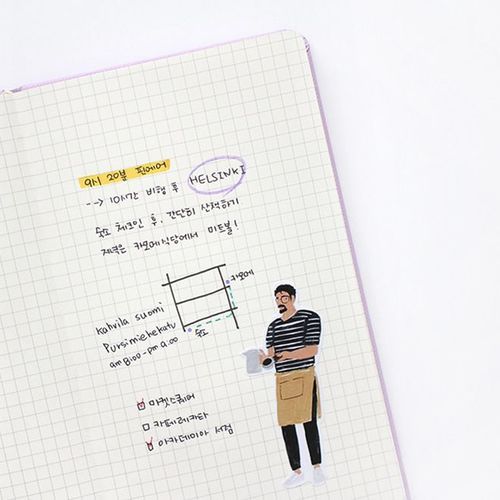 9시 20분 핀에어
--> 10시간 비행 후 HELSINKI
숙소 체크인 후, 간단히 산책하기
저녁은 카모메식당에서 미트볼!
카모메
숙소
kahvila suomi
Pursimiehekatu
am 8:00 - pm 9:00
마켓스퀘어
카페레카타
아카데미아 서점